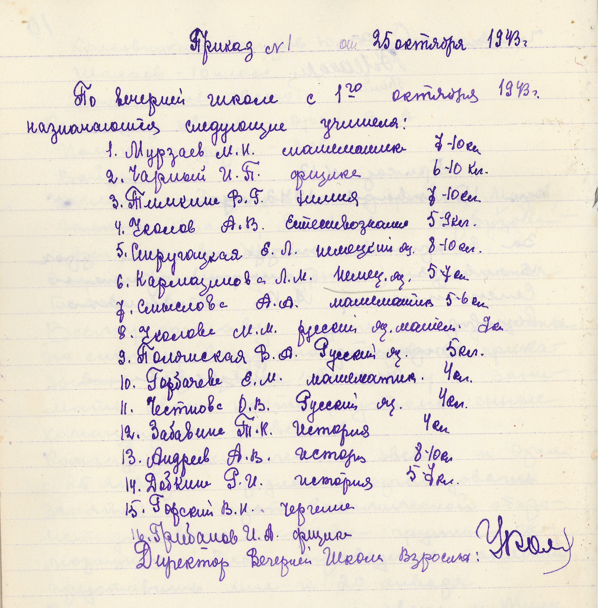 Приказ №1 от 25 октября 1943г.
По вечерней школе с 1го октября 1943г.
назначаются следующие учителя:
1. Мурзаев М.Н. математике 7-10кл
2. Чарный И.П. физике 6-10 кл.
3. Тимкине В.Г. химия 7-10кл.
4. Уколов А.В. Естествознание 5-9кл.
5. Стругацкая Е.Л. немецкий яз. 8-10кл.
6. Кармазинова Л.М. немец. яз. 5-7кл
7. Смыслова А.А. математик 5-6кл
8. Уколова М.М. русский яз. матем. 3кл
9. Полонская В.А. Русский яз 5кл.
10. Горбачева Е.М. математик. 4кл.
11. Честнова О.В. Русский яз. 4кл.
12. Забавине Т.К. история 4кл
13. Андреев А.В. истори 8-10кл
14. Добкине Р.И. история 5-7кл.
15. Горский В.Н. черчение
16. Грибанов И.А. физике
Директор Вечерней Школы Взрослы: Укол